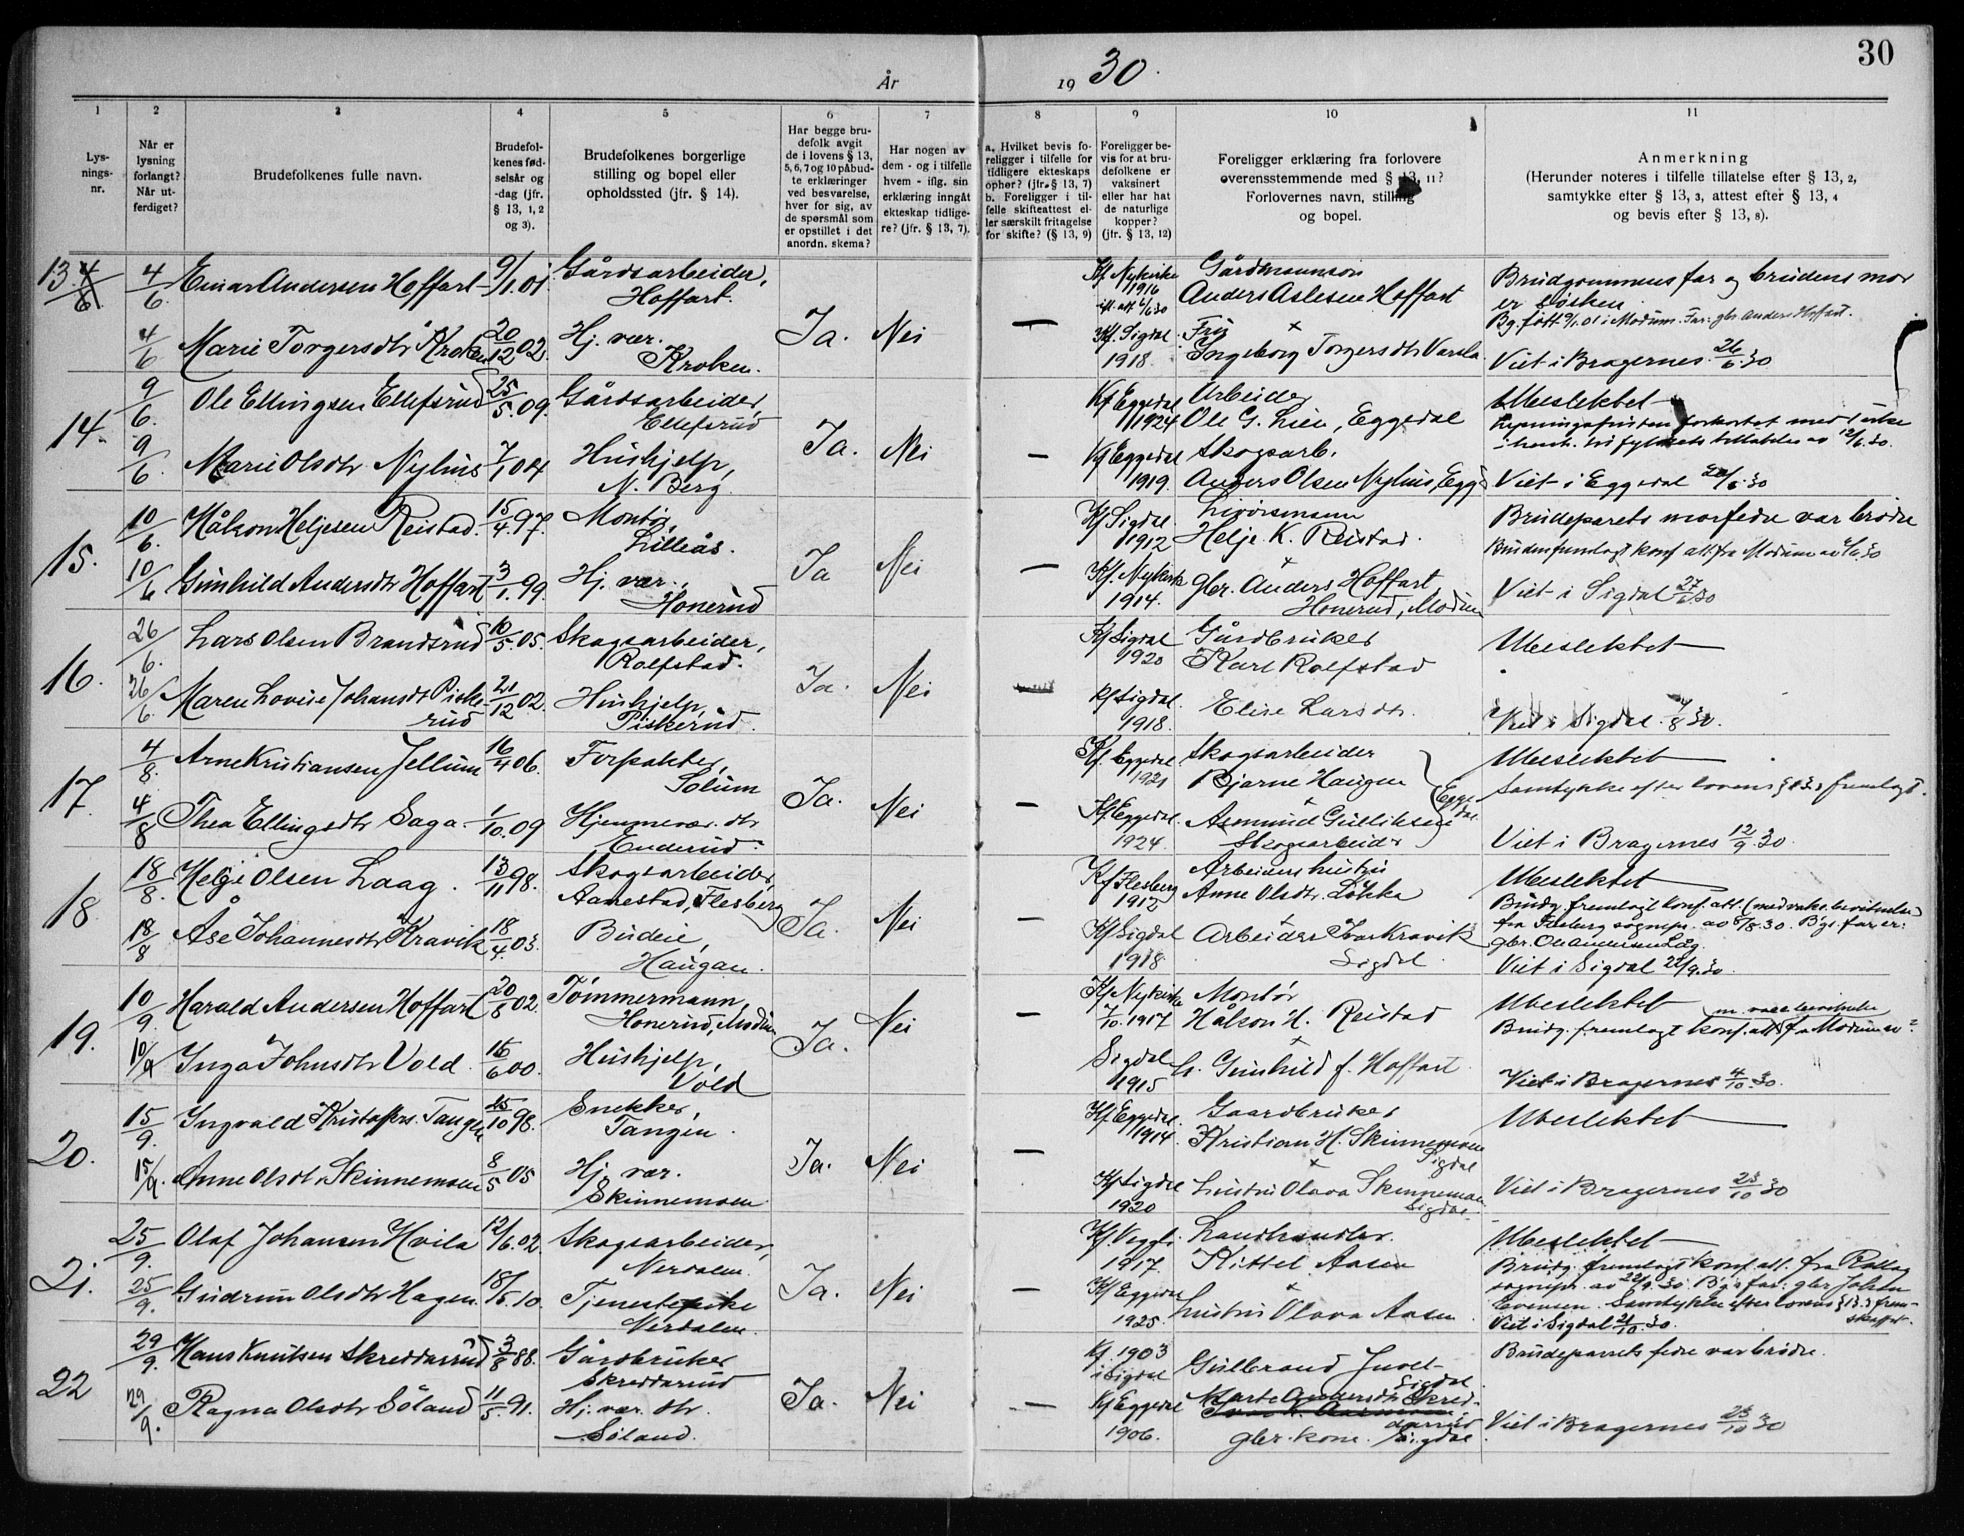 30
År 1930.
1 2 3 4 5 6 7 8 9 10 11
Lys-
nings-
nr.
Når er
lysning
forlangt?
Når ut-
ferdiget?
Brudefolkenes fulle navn.
Brudefol-
kenes fød-
selsår og
-dag (jfr.
§ 13, 1, 2
og 3).
Brudefolkenes borgerlige
stilling og bopel eller
opholdssted (jfr. § 14).
Har begge bru-
defolk avgit
de i lovens § 13,
5, 6, 7 og 10 påbud-
te erklæringer
ved besvarelse,
hver for sig, av
de spørsmål som
er opstillet i det
anordn. skema?
Har nogen av
dem - og i tilfelle
hvem - iflg. sin
erklæring inngåt
ekteskap tidlige-
re? (jfr. § 13, 7).
a. Hvilket bevis fo-
religger i tilfelle for
tidligere ekteskaps
ophør? (jfr. § 13, 7)
b. Foreligger i til-
felle skifteattest el-
ler særskilt fritagelse
for skifte? (§ 13, 9)
Foreligger be-
vis for at bru-
defolkene er
vaksinert
eller har hat
de naturlige
kopper?
(jfr. § 13, 12)
Foreligger erklæring fra forlovere
overensstemmende med § 13, 11?
Forlovernes navn, stilling
og bopel.
Anmerkning
(Herunder noteres i tilfelle tillatelse efter § 13, 2,
samtykke efter § 13, 3, attest efter § 13, 4
og bevis efter § 13, 8).
13. 4/6 Einar Andersen Hoffart 9/1.01. Gårdsarbeider,
Hoffart.
Kf. Nykirke
1916
Gårdmannsøn
Anders Aslesen Hoffart
Brudgommens far og brudens mor
er søsken.
Bg. født 9/1.01 i Modum. Far: gbr. Anders Hoffart.
4/6 Marie Torgersdtr Kroken 20/12 02. Hj. vær.
Kroken.
Ja. Nei —
Kf. Sigdal
1918.
Frk
Ingeborg Torgersdtr
Viet i Bragernes 26/6.30
14. 9/6. Ole Ellingsen Ellefsrud 25/5.09. Gårdsarbeider,
Ellefsrud
Kf Eggedal
1924
Arbeider
Ole G. Lien, Eggedal
Ubeslektet
Lysningsfristen forkortet med 1 uke
9/6. Marie Olsdtr Nyhus 7/1 04 Hushjelp,
N. Berg.
Ja. Nei —
Kf Eggedal
1919.
Skogsarb.
Anders Olsen Nyhus, Egg
Viet i Eggedal
15. 10/6. Håkon Heljesen Reistad. 15/4.97. Montør,
Lilleås.
Kf Sigdal
1912
Livøresmann
Helje K. Reistad.
Brudeparets morfedre var brødre
10/6 Gunhild Andersdtr Hoffart 3/1.99. Hj. vær.,
Honerud
Ja Nei —
Kf. Nykirke
1914.
gbr. Anders Hoffart
Honerud, Modum
Viet i Sigdal 27/6 30
16. 26/6. Lars Olsen Brandsrud 10/5.05. Skogsarbeider,
Rolfstad.
Kf Sigdal
1920
Gårdbruker
Karl Rolfstad
Ubeslektet
26/6. Maren Lovise Johansdtr Piske-
rud 21/12 02. Hushjelp,
Piskerud.
Ja. Nei —
Kf Sigdal.
1918.
Elise Larsdtr.
Viet i Sigdal
17. 4/8. Arne Kristiansen Jellum 16/4 06. Forpakter,
Solum
Kf. Eggedal
1921
Skogsarbeider
Bjarne Haugen
Ubeslektet
Samtykke efter lovens § 13.3 fremlagt.
4/8 Thea Ellingsdtr Saga. 1/10.09 Hjemmevær. dtr
Enderud.
Ja. Nei —
Kf. Eggedal.
1924.
Asmund Gulliksen
Skogsarbeider
Eggedal
Viet i Bragernes 12/9.30.
18 18/8. Helge Olsen Laag. 13/11 98. Skogsarbeider,
Aanestad, Flesberg
Kf Flesberg
1912
Arbeiderhustru
Anne Olsdtr.
Ubeslektet
Brudg. fremlagt konf. att.
gbr. Ole Andersen Låg.
18/8 Åse Johannesdtr Kravik 18/4 03. Budeie,
Haugan.
Ja. Nei —
Kf Sigdal
1918
Arbeider Ivar Kravik
Sigdal.
Viet i Sigdal
19. 10/9. Harald Andersen Hoffart 20/8 02. Tømmermann,
Honerud, Modum
Kf Nykirke
7/10.1917
Montør
Håkon H. Reistad
Ubeslektet
Brudg. fremlagt konf. att
10/9 Inga Johnsdtr Vold 16/6 00. Hushjelp,
Vold
Ja. Nei —
Sigdal
1915
h. Gunhild f. Hoffart.
Viet i Bragernes 4/10.30.
20. 15/9. Ingvald Kristoffers. Tangen 25/10 98. Snekker,
Tangen.
Kf. Eggedal.
1914.
Gaardbruker
Kristian H. Skinnemoen
Sigdal
Ubeslektet
15/9. Anne Olsdtr Skinnemoen 8/5 05 Hj. vær.
Skinnemoen
Ja. Nei —
Kf Sigdal
1920
hustru Olava Skinnemoen
Sigdal
Viet i Bragernes 25/10 30
21. 25/9. Olaf Johansen Hvila 12/6.02. Skogsarbeider,
Nerdalen.
1917.
Landhandler.
Kittel Aasen
Ubeslektet
Brudg. fremlagt konf. att. fra Rollag
sognepr. av 22/9.30. B'gs far: gbr. Johan
Evensen. Samtykke efter lovens § 13.3 frem-
skaffet.
25/9. Gudrun Olsdtr Hagen. 18/5.10. Tjenestepike
Nerdalen.
Ja. Nei —
Kf Eggedal
1925.
hustru Olava Aasen.
Viet i Sigdal 21/10.30.
22 29/9. Hans Knutsen Skreddarrud 3/8 88. Gårdbruker
Skreddarrud
Kf. 1903
i Sigdal
Gulbrand Juvel-
Sigdal
Brudeparets fedre var brødre.
29/9. Ragna Olsdtr Søland 11/5.91. Hj. vær. dtr.
Søland.
Ja. Nei —
Kf Eggedal
1906.
Marte Andersdtr Skred-
darrud
gbr. kone. Sigdal
Viet i Bragernes 25/10 30